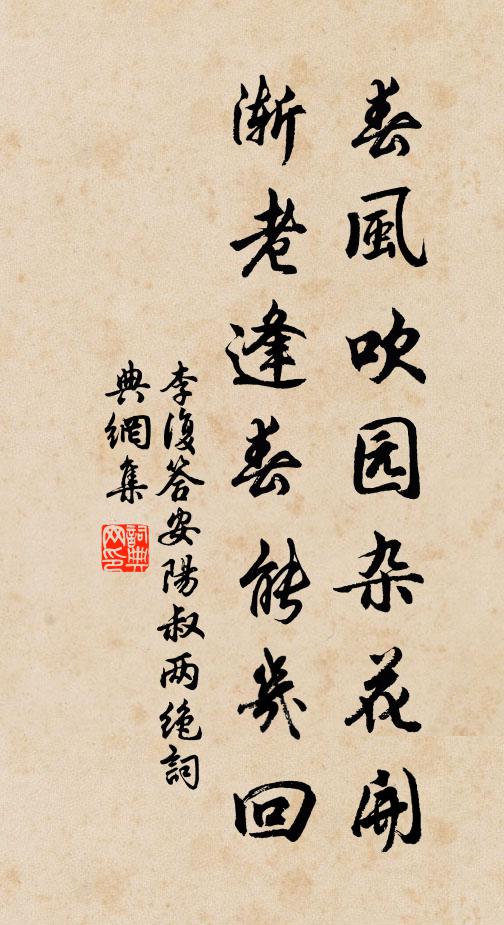 春風吹园杂花開
漸老逢春能幾回
李復答安陽叔两绝詞
典網集
詞典
网印